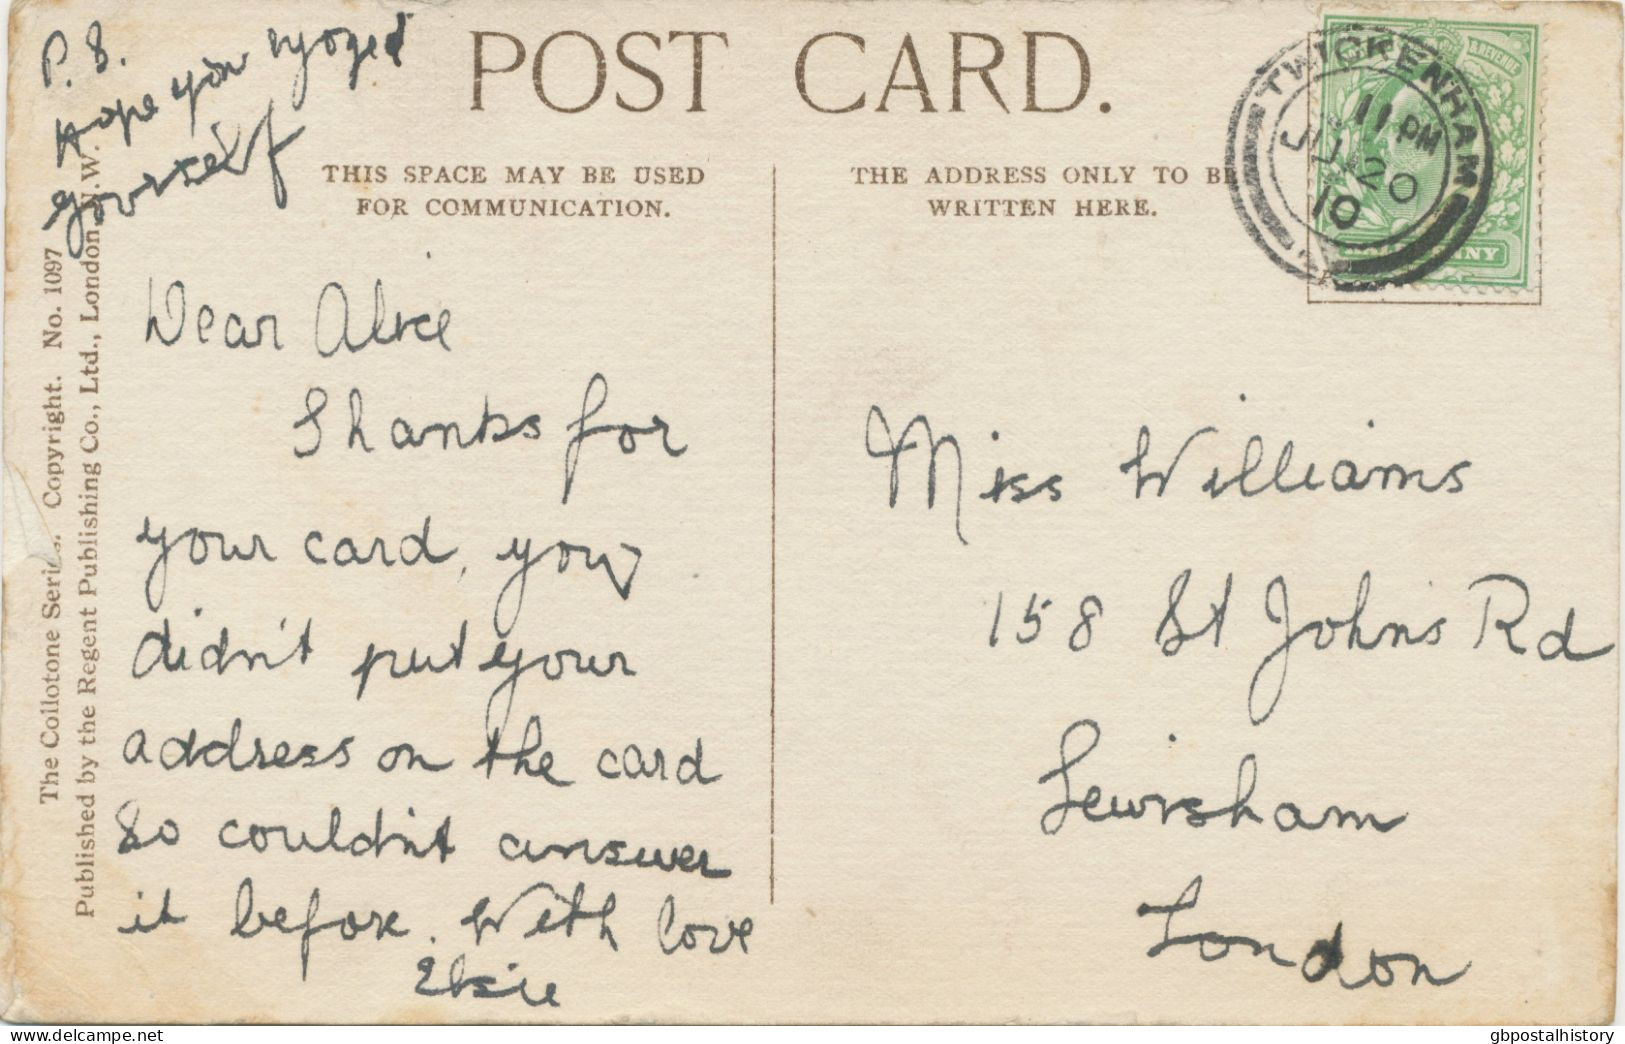 P.S.
Hope you njoyed
yourself
POST CARD.
THIS SPACE MAY BE USED
FOR COMMUNICATION.
THE ADDRESS ONLY TO BE
WRITTEN HERE.
TWICKENHAM
11 PM
JU 20
10
The Collotone Series. Copyright. No. 1097
Published by the Regent Publishing Co., Ltd., London, N.W.
Dear Alice
Thanks for
your card, you
didn't put your
address on the card
So couldn't answer
it before. With love
Elsie
Miss Williams
158 St Johns Rd
Lewisham
London
delcampe.net
gbpostalhistory